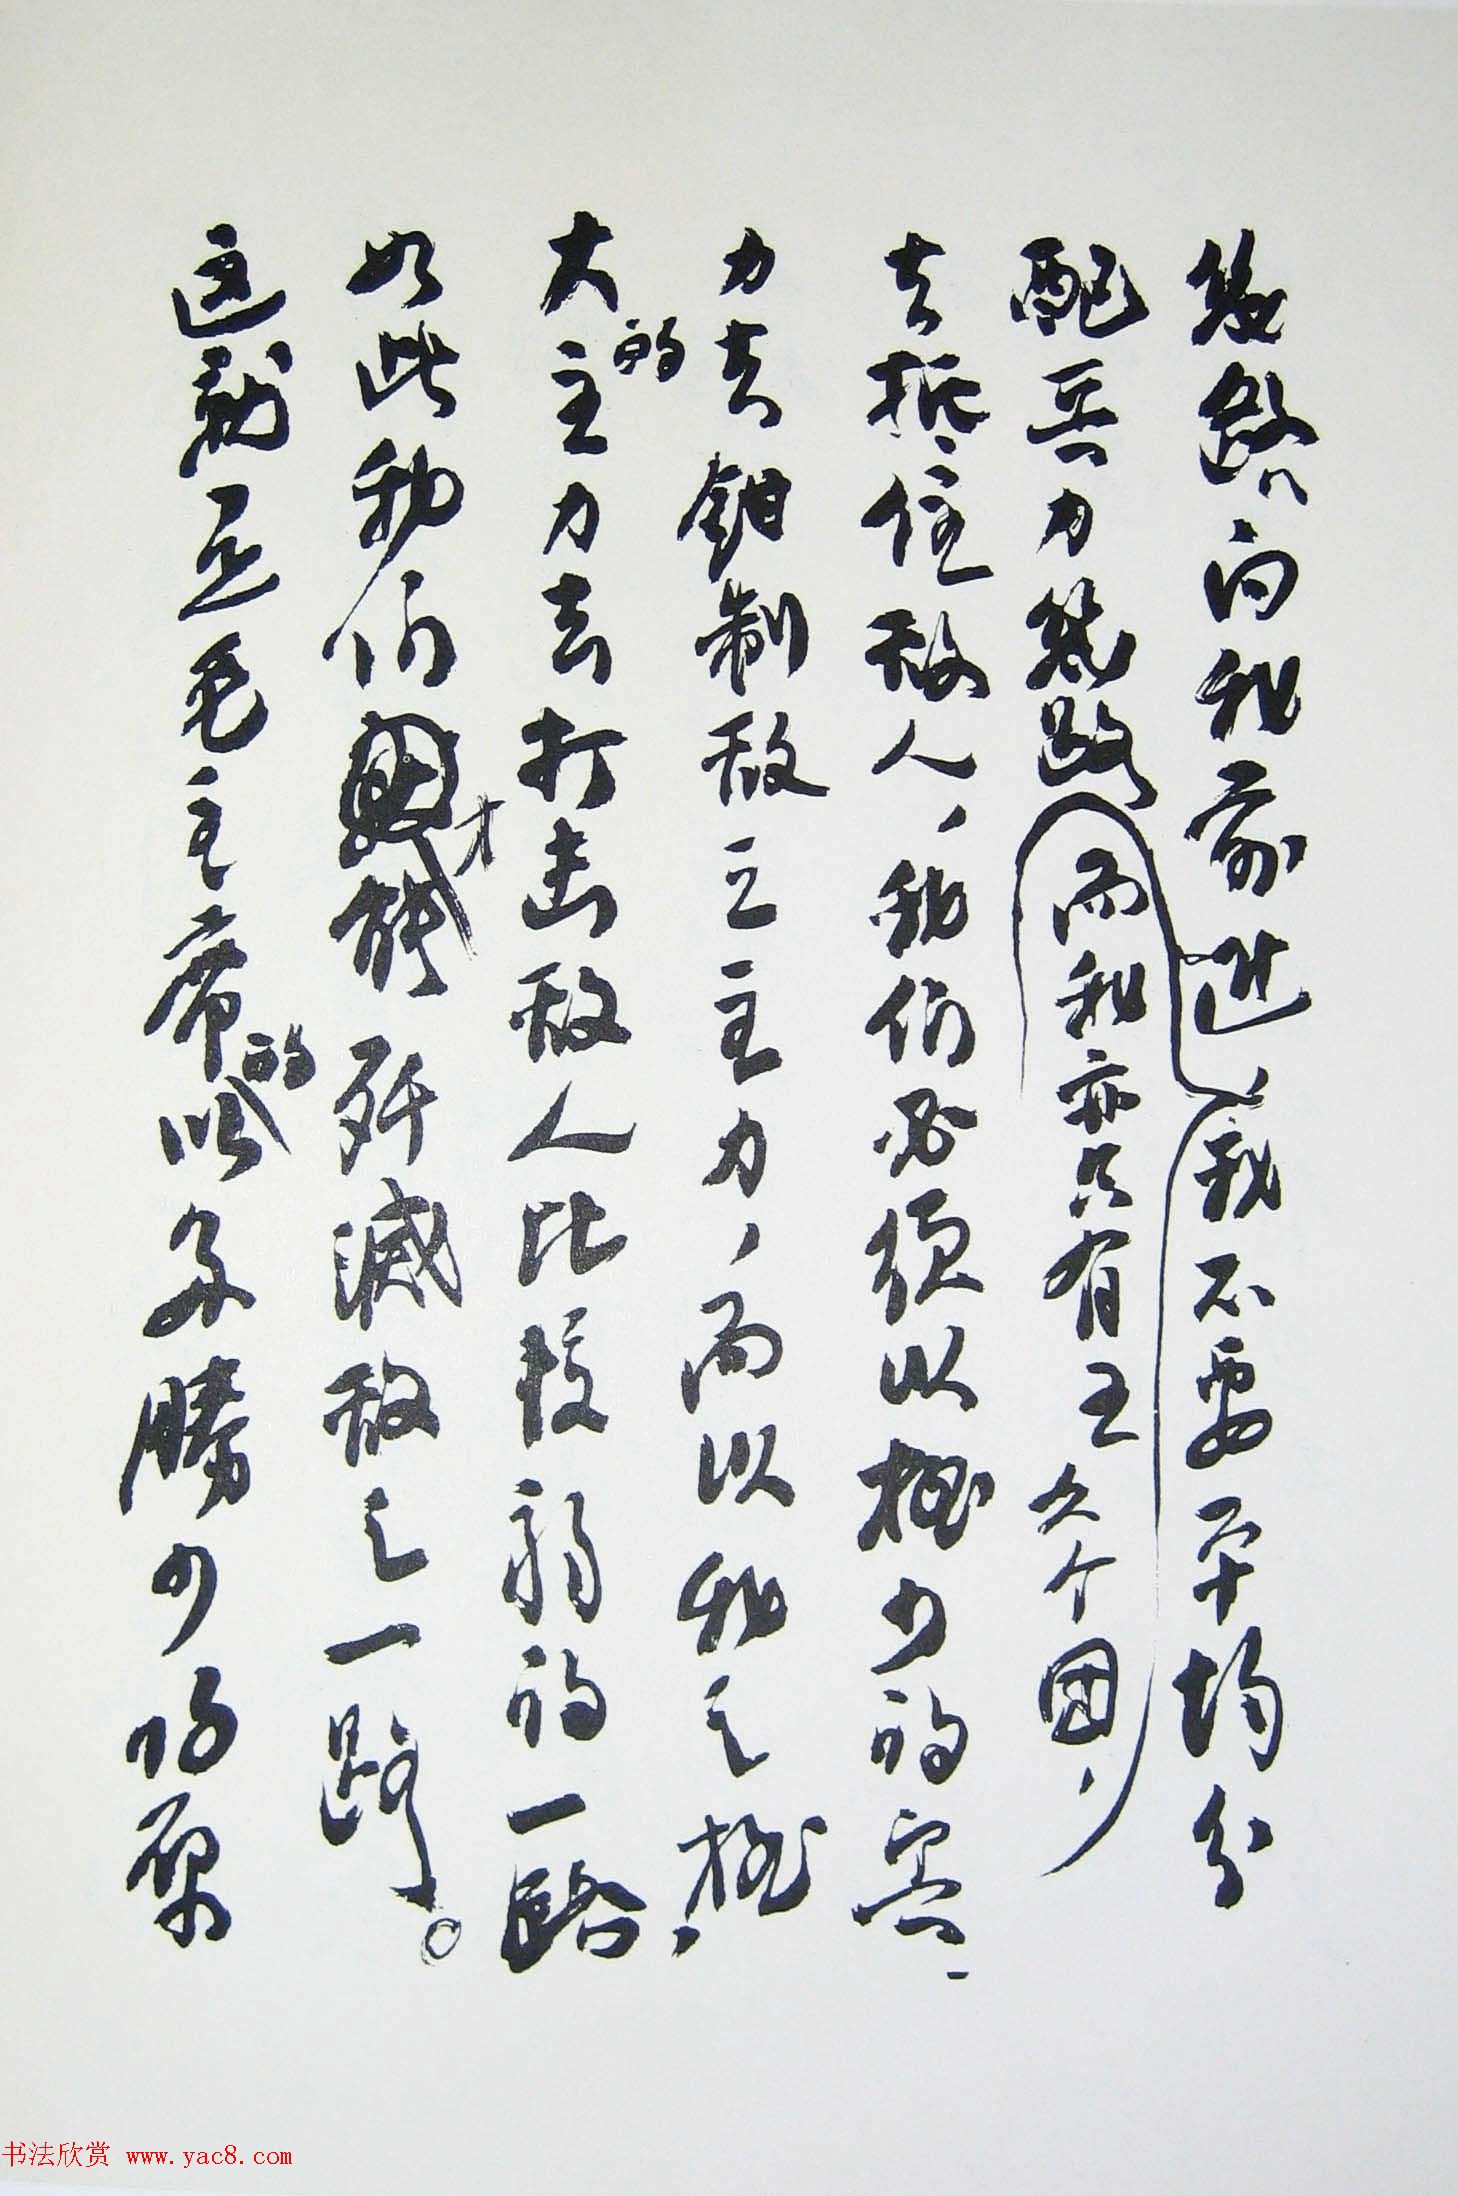 数路向我前进，我不要平均分
配兵力几路（而我亦只有五六个团，）
去抵住敌人，我们必须以极少的兵
力去钳制敌之主力，而以我之极
大的主力去打击敌人比较弱的一路
如此我们才能歼灭敌之一路。
这就是毛主席的以多胜少的原
书法欣赏 www.yac8.com